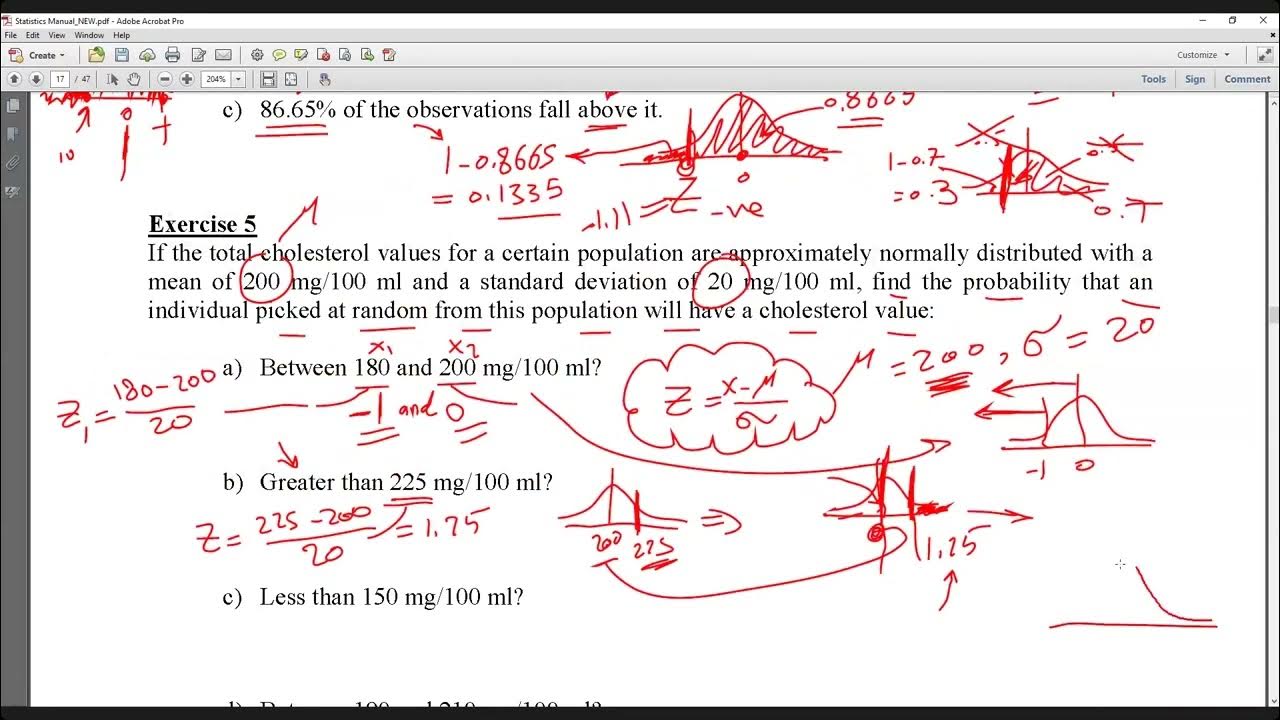 Statistics Manual_NEW.pdf - Adobe Acrobat Pro
File Edit View Window Help
Create
Customize
17 / 47
204%
Tools Sign Comment
c) 86.65% of the observations fall above it.
0.8665
1-0.8665
= 0.1335
0
-1.11 = Z -ve
1-0.7
= 0.3
0.7
10
0
Exercise 5
μ
If the total cholesterol values for a certain population are approximately normally distributed with a
mean of 200 mg/100 ml and a standard deviation of 20 mg/100 ml, find the probability that an
individual picked at random from this population will have a cholesterol value:
x1 x2
μ = 200, σ = 20
a) Between 180 and 200 mg/100 ml?
Z1 = 180-200
20
-1 and 0
Z = x-μ
σ
-1 0
b) Greater than 225 mg/100 ml?
Z = 225-200 = 1.25
20
200 225
⇒
0 1.25
c) Less than 150 mg/100 ml?